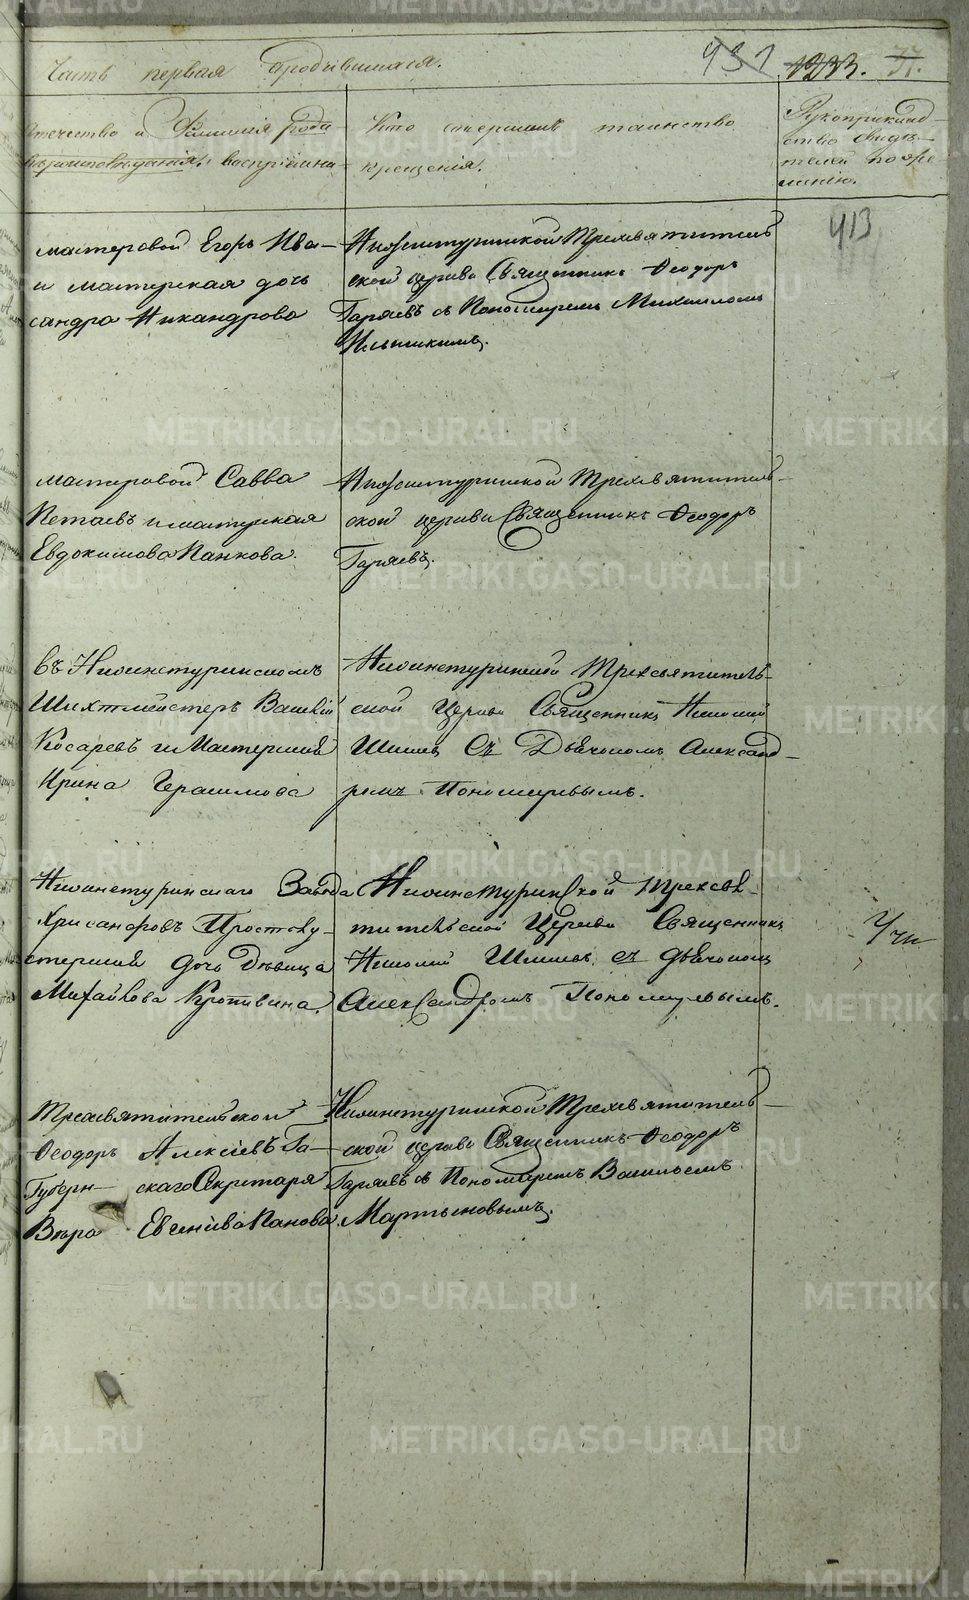 Часть первая о родившихся.
431 1233. 37.
отчество и Фамилія роди-
вѣроисповѣданія. воспріѣмни-
Кто совершалъ таинство
крещенія.
Рукоприклад-
ство свидѣ-
телей по же-
ланію.
413
мастеровой Егоръ Ива-
и мастерская дочь
сандра Никандрова
Нижнетуринской Трехсвятитель
ской церкви Священникъ Ѳеодоръ
Гаряевъ съ Пономаремъ Михаиломъ
мастеровой Савва
Петаевъ и мастерская
Евдокимова Панкова.
Нижнетуринской Трехсвятитель-
ской церкви Священникъ Ѳеодоръ
Гаряевъ.
въ Нижнетуринскомъ
Шихтмейстеръ Василій
Косаревъ и Мастерская
Ирина Герасимова
Нижнетуринской Трехсвятитель-
ской Церкви Священникъ Николай
Шишевъ Съ Дьячкомъ Александ-
ромъ Пономаревымъ.
Нижнетуринскаго Завода
Хрисанфовъ Простоку-
стерская дочь Дѣвица
Михайлова Кропивина.
Нижнетуринской Трехсвя-
тительской Церкви Священникъ
Николай Шишевъ съ Дьячкомъ
Александромъ Пономаревымъ.
Трехсвятительской
Ѳеодоръ Алексѣевъ Га-
Губерн- скаго Секретаря
Вѣра Евгеніева Панова
Нижнетуринской Трехсвятитель-
ской церкви Священникъ Ѳеодоръ
Гаряевъ съ Пономаремъ Василіемъ
Мартыновымъ.
METRIKI.GASO-URAL.RU